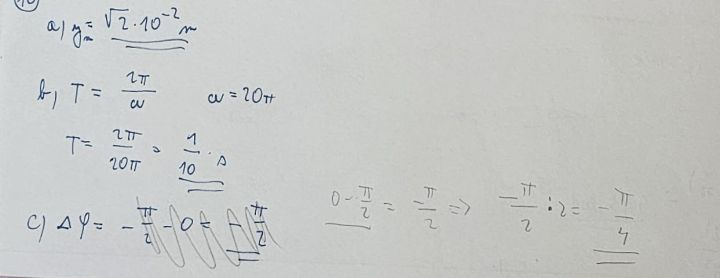 10
a) yₘ = √2 · 10⁻² m
b) T = 2π/ω ω = 20π
T = 2π/20π = 1/10 · s
c) Δφ = -π/2 - 0 = -π/2 0 - π/2 = -π/2 => -π/2 : 2 = -π/4